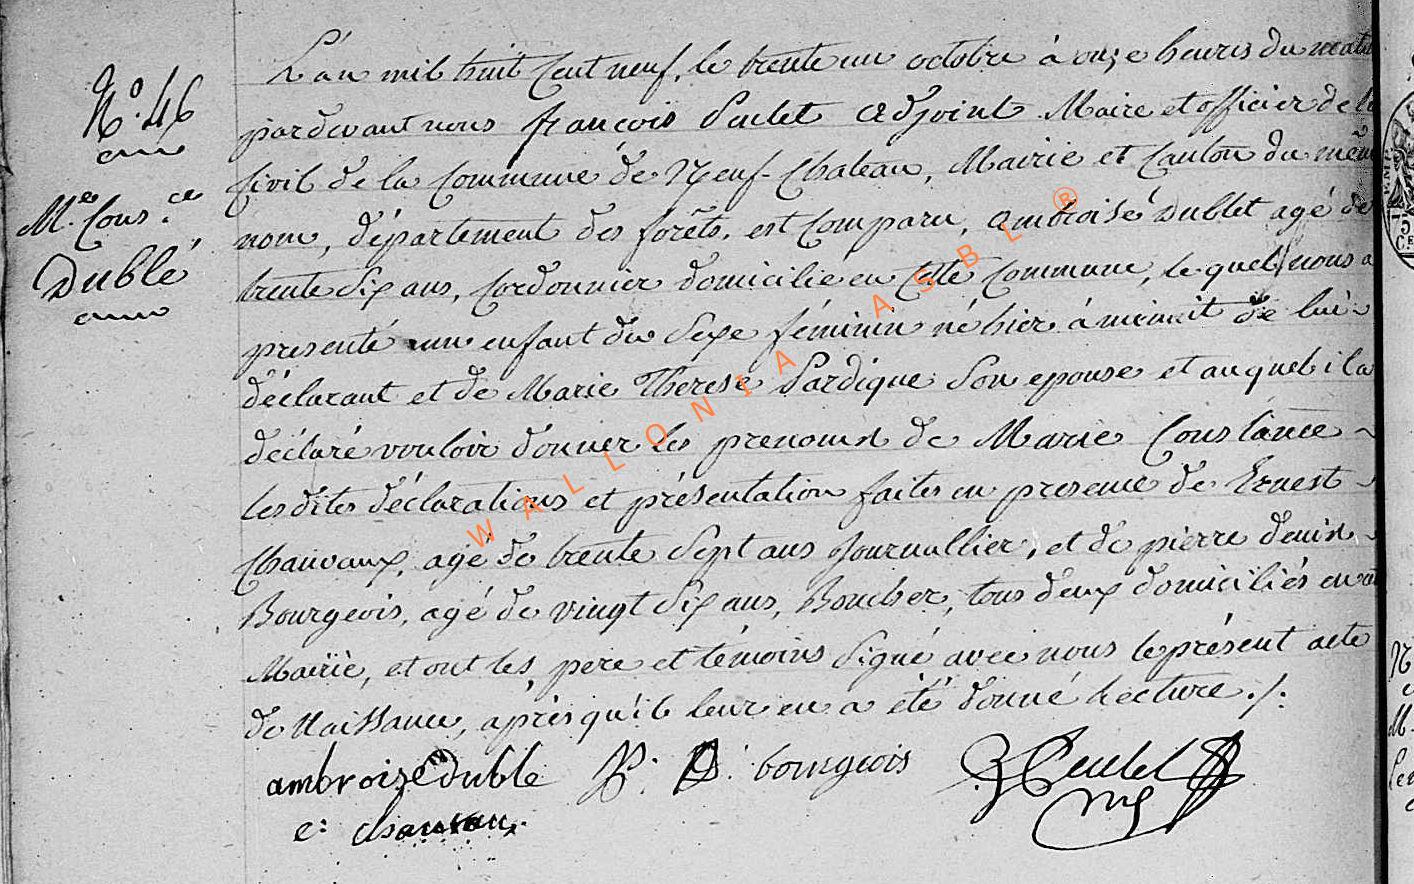 N.o 46
M.e Cons.ce
Dublé
L'an mil huit cent neuf, le trente un octobre à onze heures du matin
pardevant nous françois adjoint Maire et officier de l'
Civil de la Commune de Neuf-Chateau, Mairie et Canton du même
nom, département des forêts, est comparu, ambroise Dublet agé de
trente six ans, Cordonnier domicilié en cette Commune, lequel nous a
presenté un enfant du Sexe féminin né hier à minuit de lui
déclarant et de Marie Therese Lardique son epouse et auquel il a
déclaré vouloir donner les prenoms de Marie Constance
lesdites déclarations et présentation faites en presence de Ernest
Chauvaux, agé de trente Sept ans Journallier, et de pierre denis
Bourgeois, agé de vingt Six ans, Boucher, tous deux domiciliés en
Mairie, et ont les pere et témoins Signé avec nous le présent acte
de Naissance, après qu'il leur en a été donné lecture ./.
ambroise Dublé P. D. bourgeois
e: chauvaux
WALLONIA ASBL ®